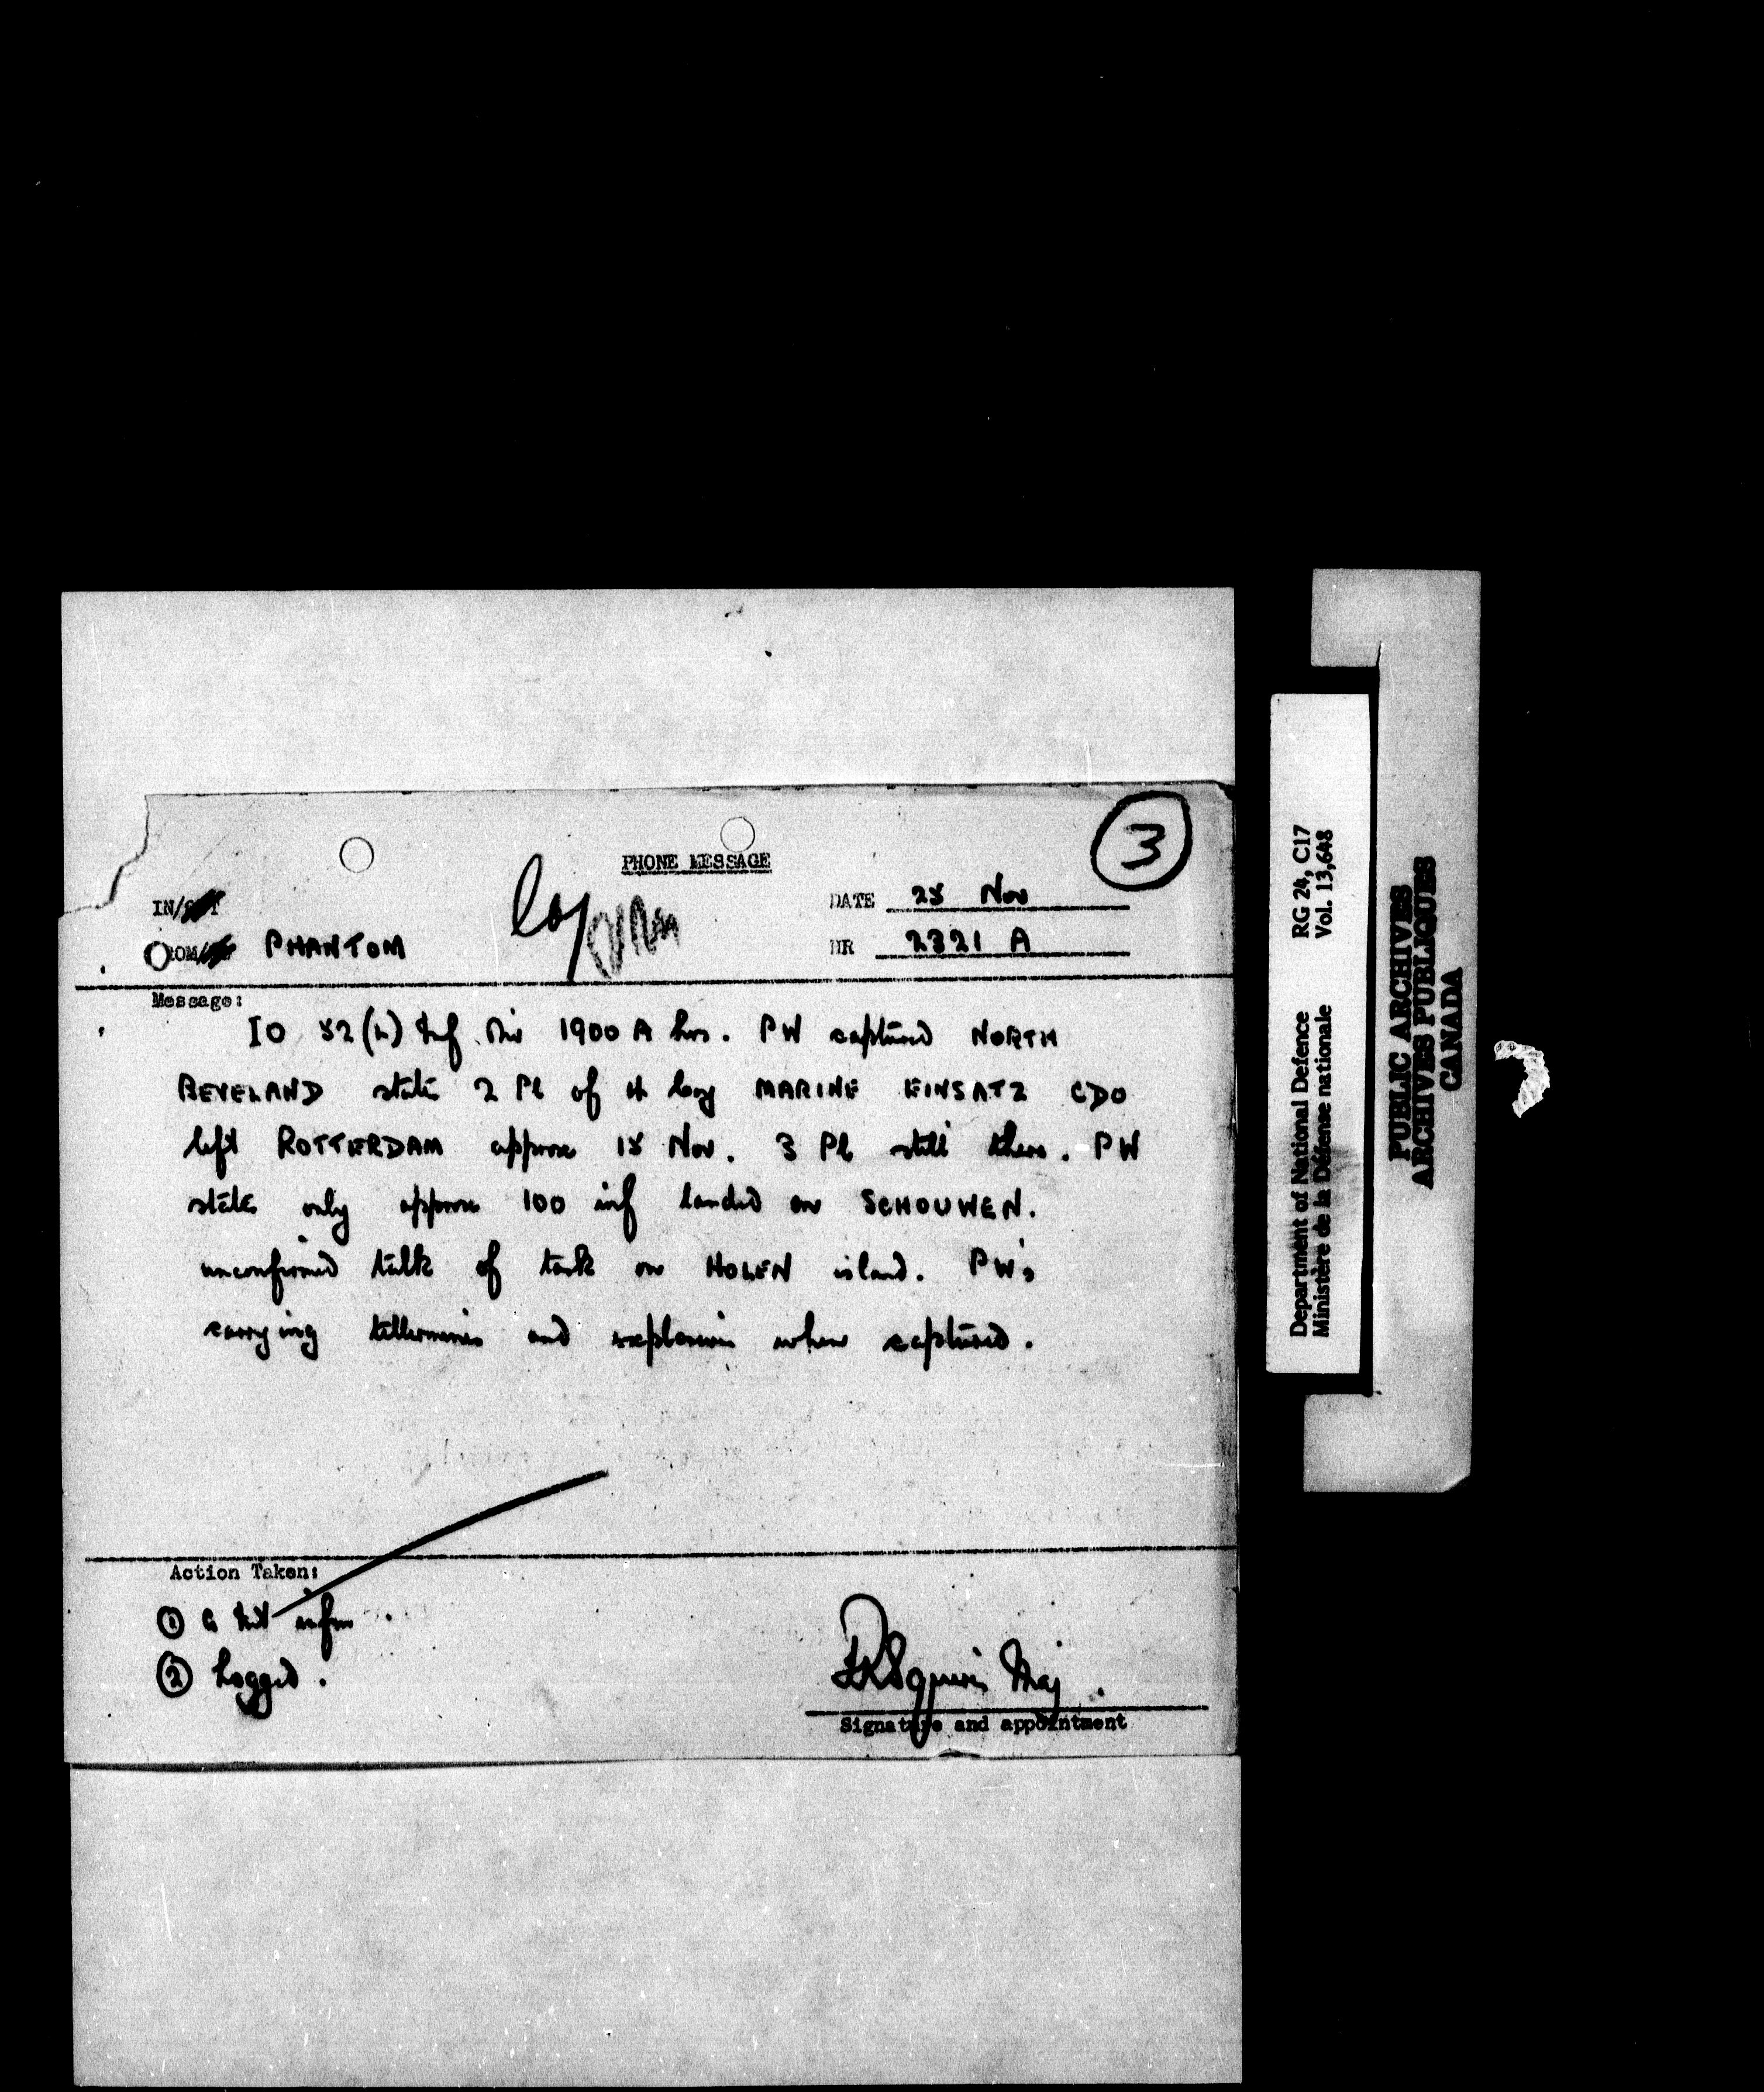 3
PHONE MESSAGE
log
IN/
DATE 25 Nov
PHANTOM
HR 2321 A
Message:
IO 52 (L) Inf Div 1900 A hrs. PW captured NORTH
BEVELAND state 2 Pl of H Coy MARINE EINSATZ CDO
left ROTTERDAM approx 15 Nov. 3 Pl still there. PW
state only approx 100 inf landed on SCHOUWEN.
unconfirmed talk of tank on HOLEN island. PW's
carrying tellermines and explosives when captured.
Action Taken:
① G Int infm
② Logged.
Maj.
Signature and appointment
Department of National Defence RG 24, C17
Ministère de la Défense nationale Vol. 13,648
PUBLIC ARCHIVES
ARCHIVES PUBLIQUES
CANADA